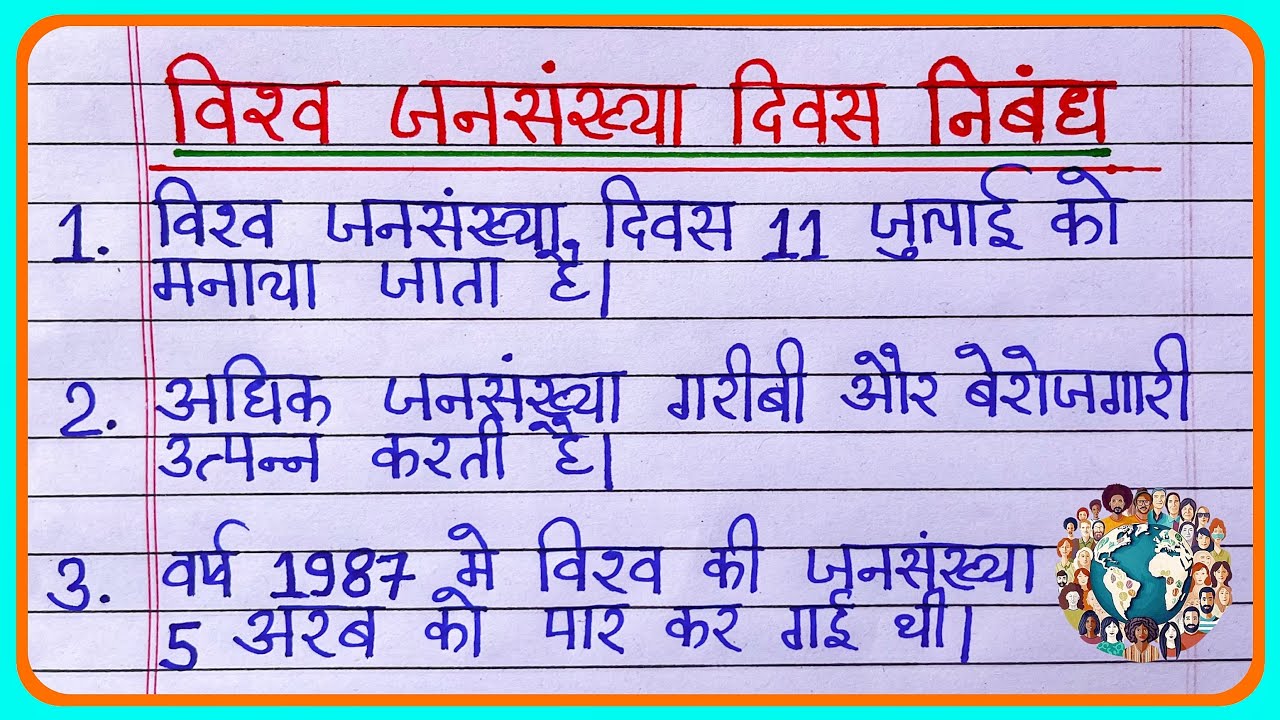 विश्व जनसंख्या दिवस निबंध
1. विश्व जनसंख्या दिवस 11 जुलाई को
मनाया जाता है।
2. अधिक जनसंख्या गरीबी और बेरोजगारी
उत्पन्न करती है।
3. वर्ष 1987 मे विश्व की जनसंख्या
5 अरब को पार कर गई थी।